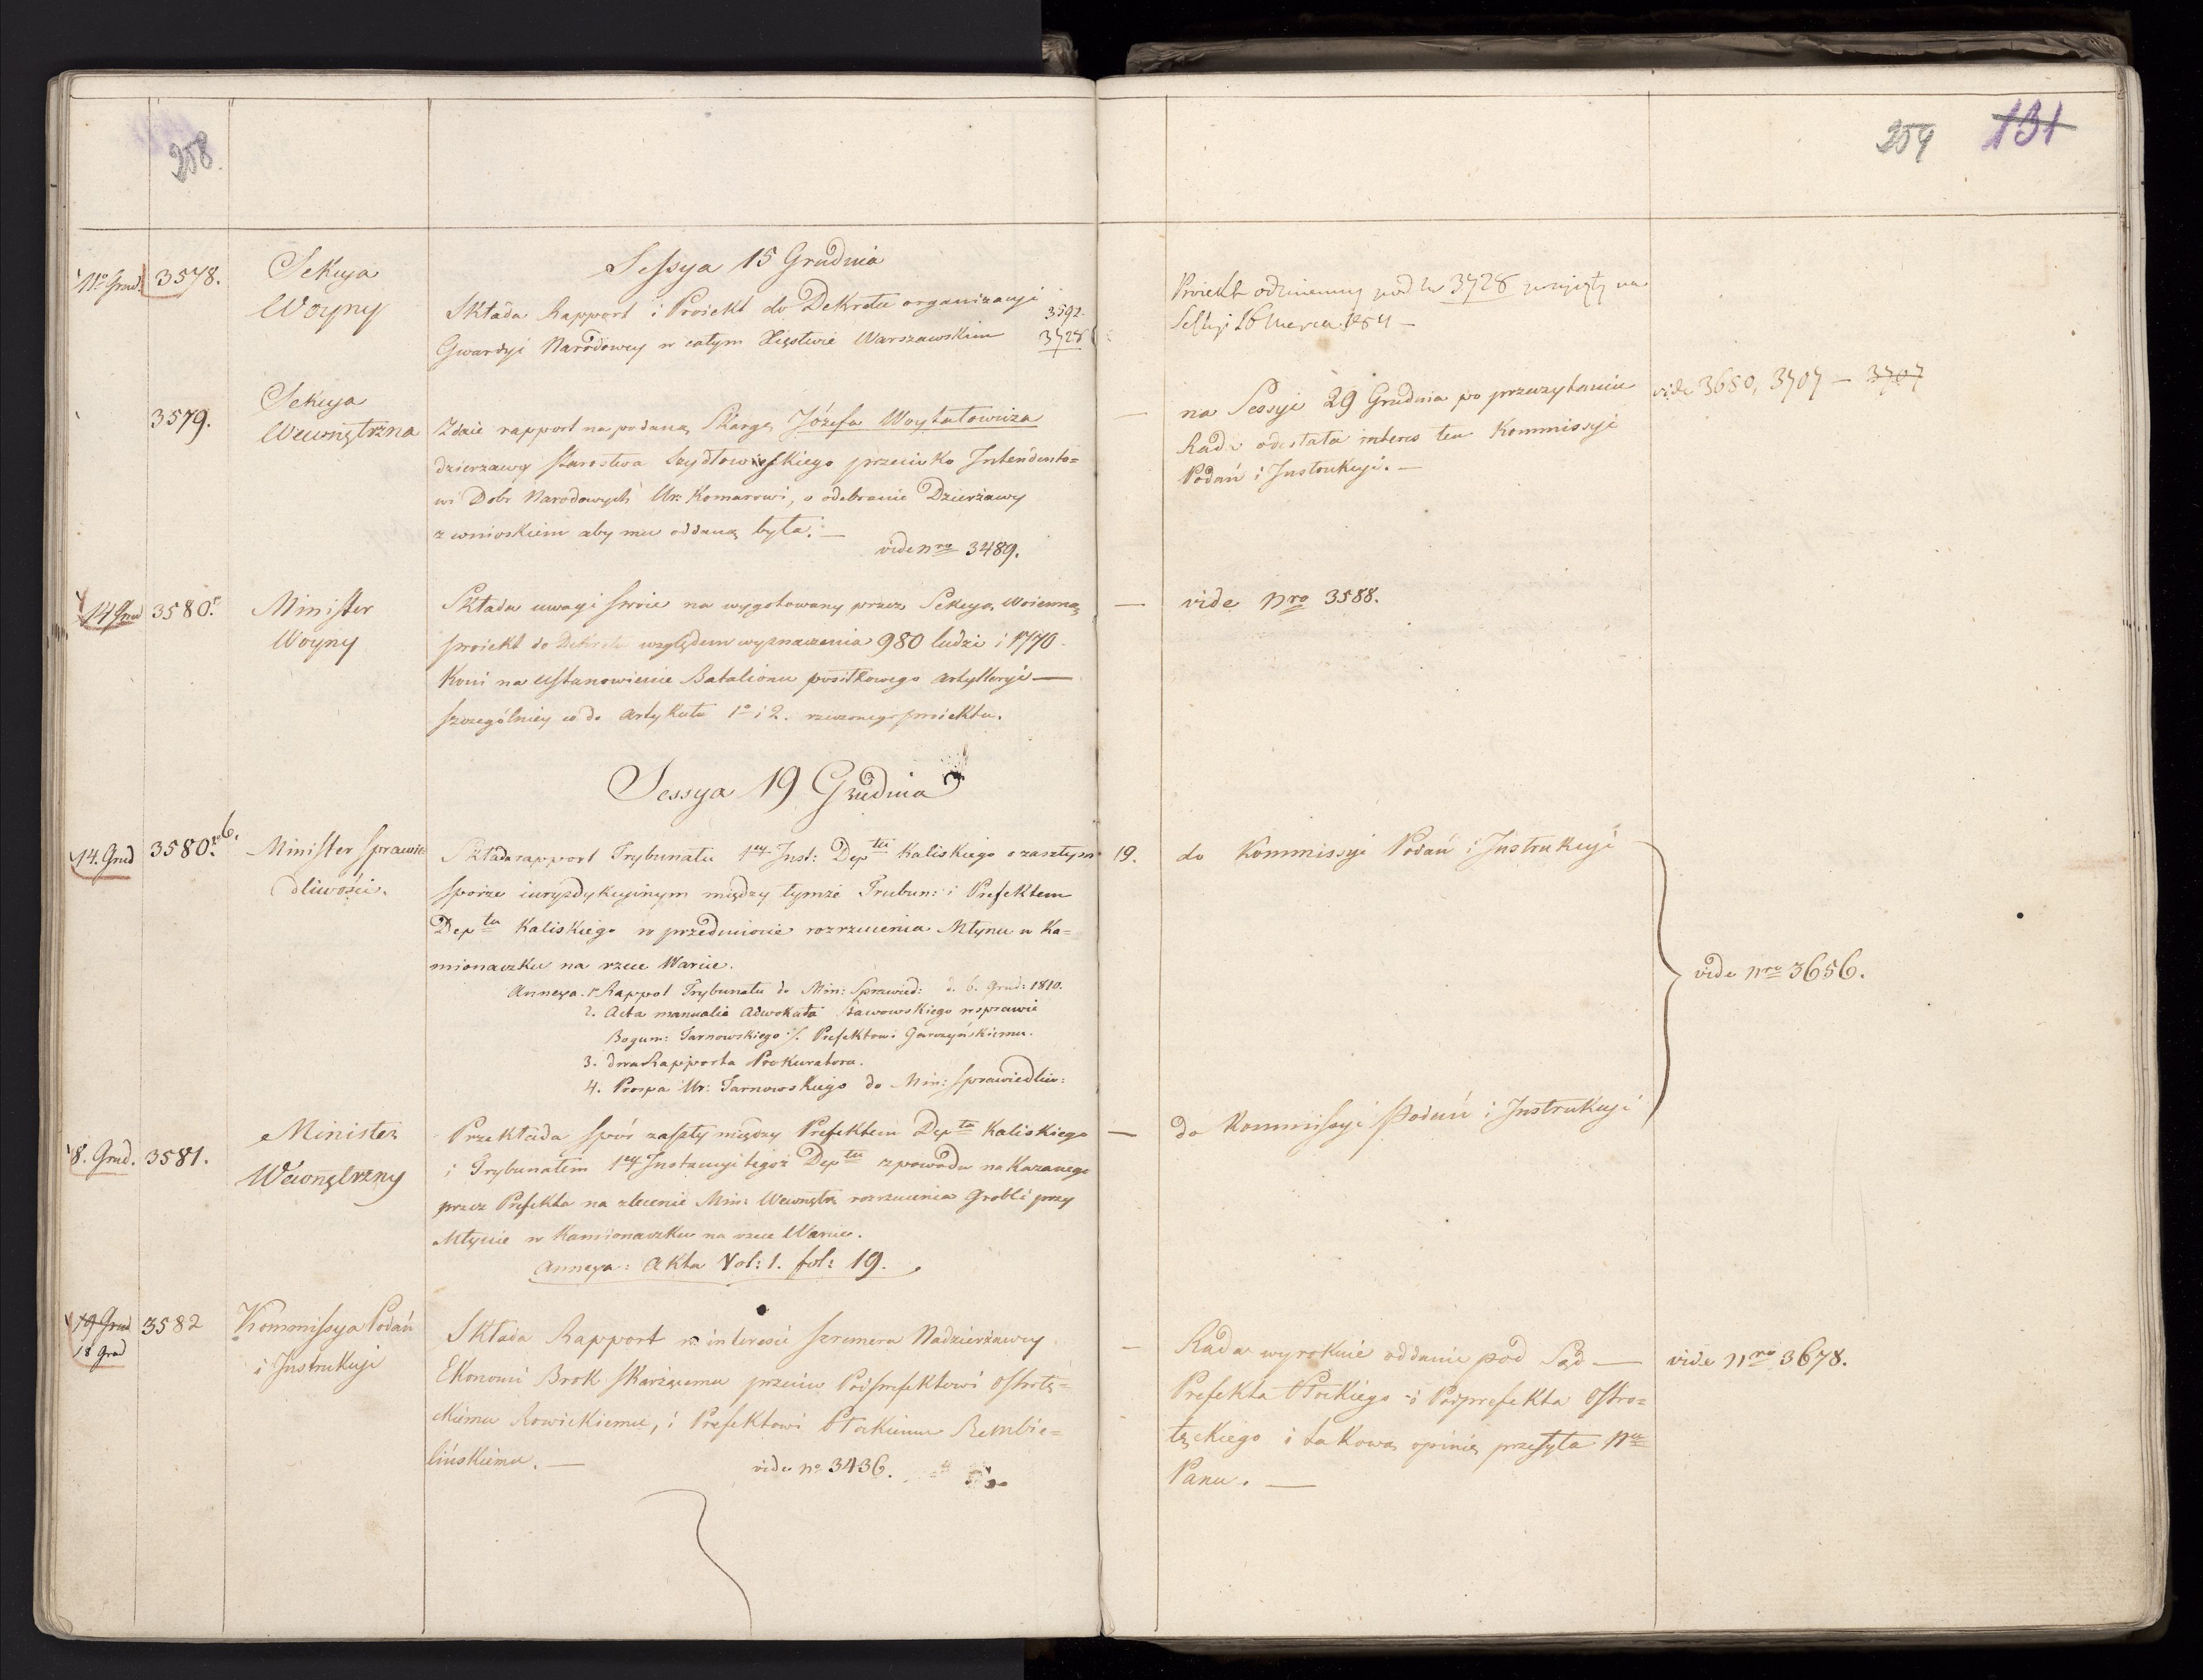 258
259 131
Sessya 15 Grudnia
11º Grud. 3578. Sekcya
Woyny
Składa Rapport i Proiekt do Dekretu organizacyi 3592.
Gwardyi Narodowey w całym Xięstwie Warszawskim 3728
Proiekt odmienny pod Nr 3728 przyięty na
Sessyi 16 Marca
3579. Sekcya
Wewnętrzna
Zdaie rapport na podaną Skargę Józefa Woytatowicza
dzierzawcy Starostwa Szydłowieskiego przeciwko Intendento=
wi Dobr Narodowych Ur: Komarowi, o odebranie Dzierżawy
z wnioskiem aby mu oddaną była. —
vide nro 3489.
— na Sessyi 29 Grudnia po przeczytaniu
Rada odesłała interes ten Kommissyi
Podań i Instrukcyi. —
vide 3680, 3707 — 3707
14 Grud 3580. Minister
Woyny
Składa uwagi swoie na wygotowany przez Sekcyą Woienną
proiekt do Dekretu względem wyznaczenia 980 ludzi i 1770
Koni na Ustanowienie Batalionu posiłkowego artylleryi —
szczególniey co do Artykułu 1º i 2. rzeczonego proiektu.
— vide nro 3588.
Sessya 19 Grudnia
14. Grud 3580. b. Minister Sprawie
dliwości.
Składa rapport Trybunału 1ey Inst: Deptu Kaliskiego o zaszłym
sporze iuryzdykcyinym między tymże Trubun: i Prefektem
Deptu Kaliskiego w przedmiocie rozrzucenia Młynu w Ka=
mionaczku na rzece Warcie.
Annexa. 1º Rappot Trybunału do Min: Sprawied: d. 6. Grud: 1810.
2. Acta manualia Adwokata w sprawie
Bogum: Tarnowskiego /. Prefektowi Garczyńskiemu.
3. dwa Rapporta Prokuratora.
4. Prośba Ur: Tarnowskiego do Min: Sprawiedliw:
19. do Kommissyi Podań i Instrukcyi
vide nro 3656.
8. Grud. 3581. Minister
Wewnętrzny
Przekłada spór zaszły między Prefektem Deptu Kaliskiego
i Trybunałem 1ey Instancyi tegoż Deptu z powodu nakazanego
przez Prefekta na zlecenie Min: Wewnętrz rozrzucenia Grobli przy
Młynie w Kamionaczku na rzece Warcie.
Annexa: Akta Vol: 1. fol: 19.
— do Kommissyi Podań i Instrukcyi
19 Grud
18 Grud
3582 Kommissya Podań
i Instrukcyi
Składa Rapport w interesie Szremera Nadzierżawcy
Ekonomii Brok Skarżącemu przeciw Podprefektowi Ostrołę=
ckiemu Rowickiemu, i Prefektowi Płockiemu Rembie=
lińskiemu. —
vide nº 3436.
— Rada wyrokuie oddanie pod Sąd —
Prefekta Płockiego i Podprefekta Ostro=
łęckiego i takową opinię przesyła
Panu. —
vide nro 3678.